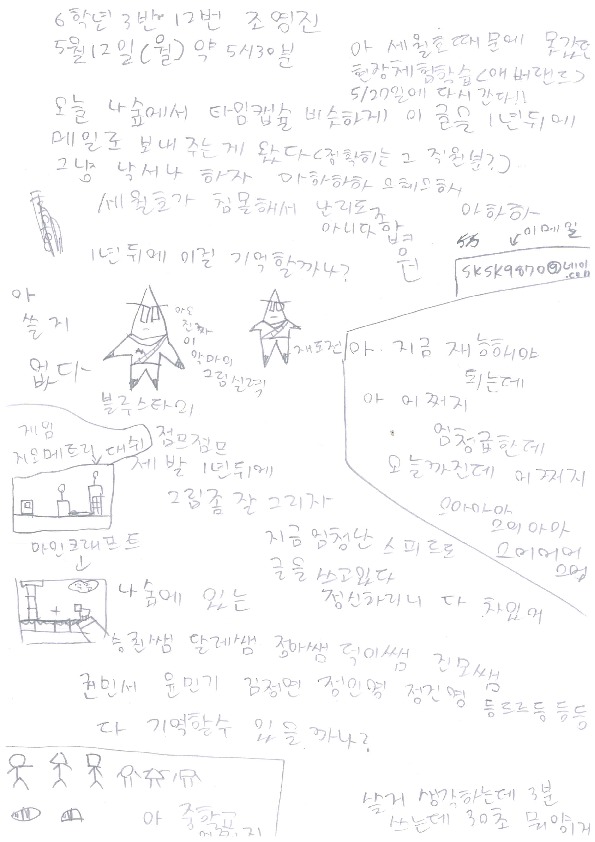 6학년 3반 12번 조영진
5월 12일(월) 약 5시30분
아 세월호때문에 못갔던
현장체험학습<애버랜드>
5/27일에 다시간다!!
오늘 나숲에서 타임캡슐 비슷하게 이 글을 1년뒤에
메일로 보내주는게 왔다<정확히는 그 직원분?>
그냥 낙서나 하자 마하하하
아하하
세월호가 침몰해서 난리도
아니다
1년뒤에 이걸 기억할까나?
이메일
아
쓸 지
없다
아오
진짜
이
악마의
그림실력
블루스타리
아 지금 재능해야
되는데
아 어쩌지
엄청급한데
오늘까진데 어쩌지
으아아아
으의아아
그어어어
게임
지오메트리 대쉬
점프점프
제발 1년뒤에
그림좀 잘 그리자
마인크래프트
지금 엄청난 스피드로
글을 쓰고있다
정신차리니 다 차있어
나숲에 있는
승환쌤 달레쌤 정아쌤 덕이쌤 진모쌤
권민서 윤민기 김정연 정인혁 정진영 등드르등 등등
다 기억할수 있을까나?
아 중학교
쓸거 생각하는데 3분
쓰는데 30초